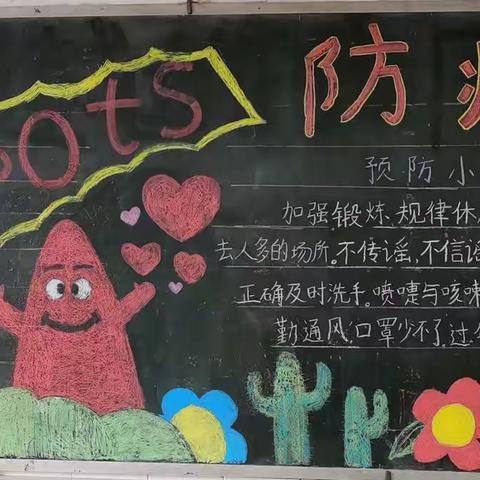 oots
防
预防小
加强锻炼、规律休
去人多的场所。不传谣,不信谣
正确及时洗手。喷嚏与咳嗽
勤通风,口罩少不了,过